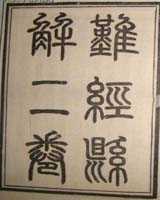 難經縣
解二卷